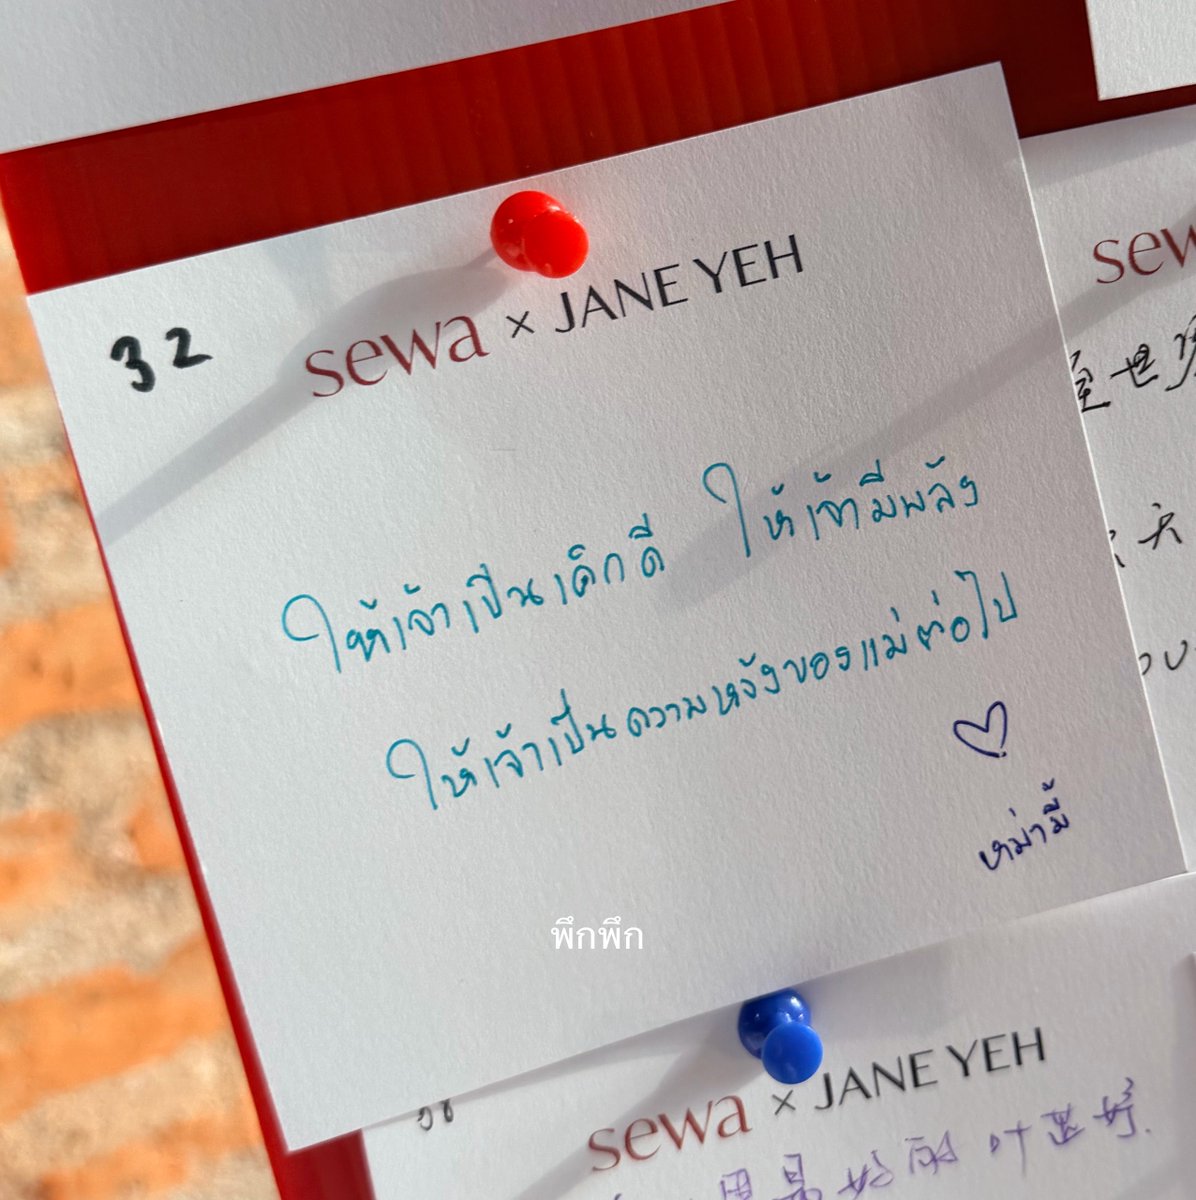 32
sewa × JANE YEH
ให้เจ้าเป็นเด็กดี ให้เจ้ามีพลัง
ให้เจ้าเป็นความหวังของแม่ต่อไป
♡
หม่ามี้
พึกพึก
sew
至世
天
sewa × JANE YEH